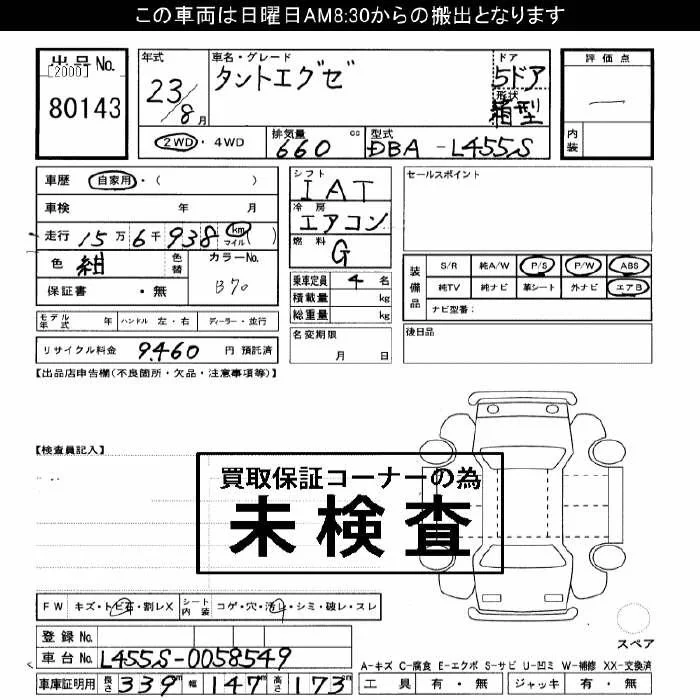 この車両は日曜日AM8:30からの搬出となります
出品No.
[2000]
80143
年式
23/8月
車名・グレード
タントエグゼ
ドア
5ドア
形状
箱型
評価点
内装
2WD・4WD
排気量 660 cc
型式 DBA-L455S
車歴 自家用・( )
車検 年 月
走行 15万6千938 km マイル ( )
色 紺 色替 カラーNo. B70
保証書 ・無
シフト
IAT
冷房
エアコン
燃料
G
乗車定員 4 名
積載量 kg
総重量 kg
セールスポイント
装備品 S/R 純A/W P/S P/W ABS
純TV 純ナビ 革シート 外ナビ エアB
ナビ型番:
モデル年式 年 ハンドル 左・右 ディーラー・並行
リサイクル料金 9,460 円 預託済
名変期限
月 日
後日品
【出品店申告欄(不良箇所・欠品・注意事項等)】
【検査員記入】
買取保証コーナーの為
未検査
FW キズ・トビ石・割レX シート内装 コゲ・穴・汚レ・シミ・破レ・スレ
登録No.
車台No. L455S-0058549
車庫証明用 長さ 339m 幅 147m 高さ 173cm
スペア
A-キズ C-腐食 E-エクボ S-サビ U-凹ミ W-補修 XX-交換済
工具 有・無 ジャッキ 有・無